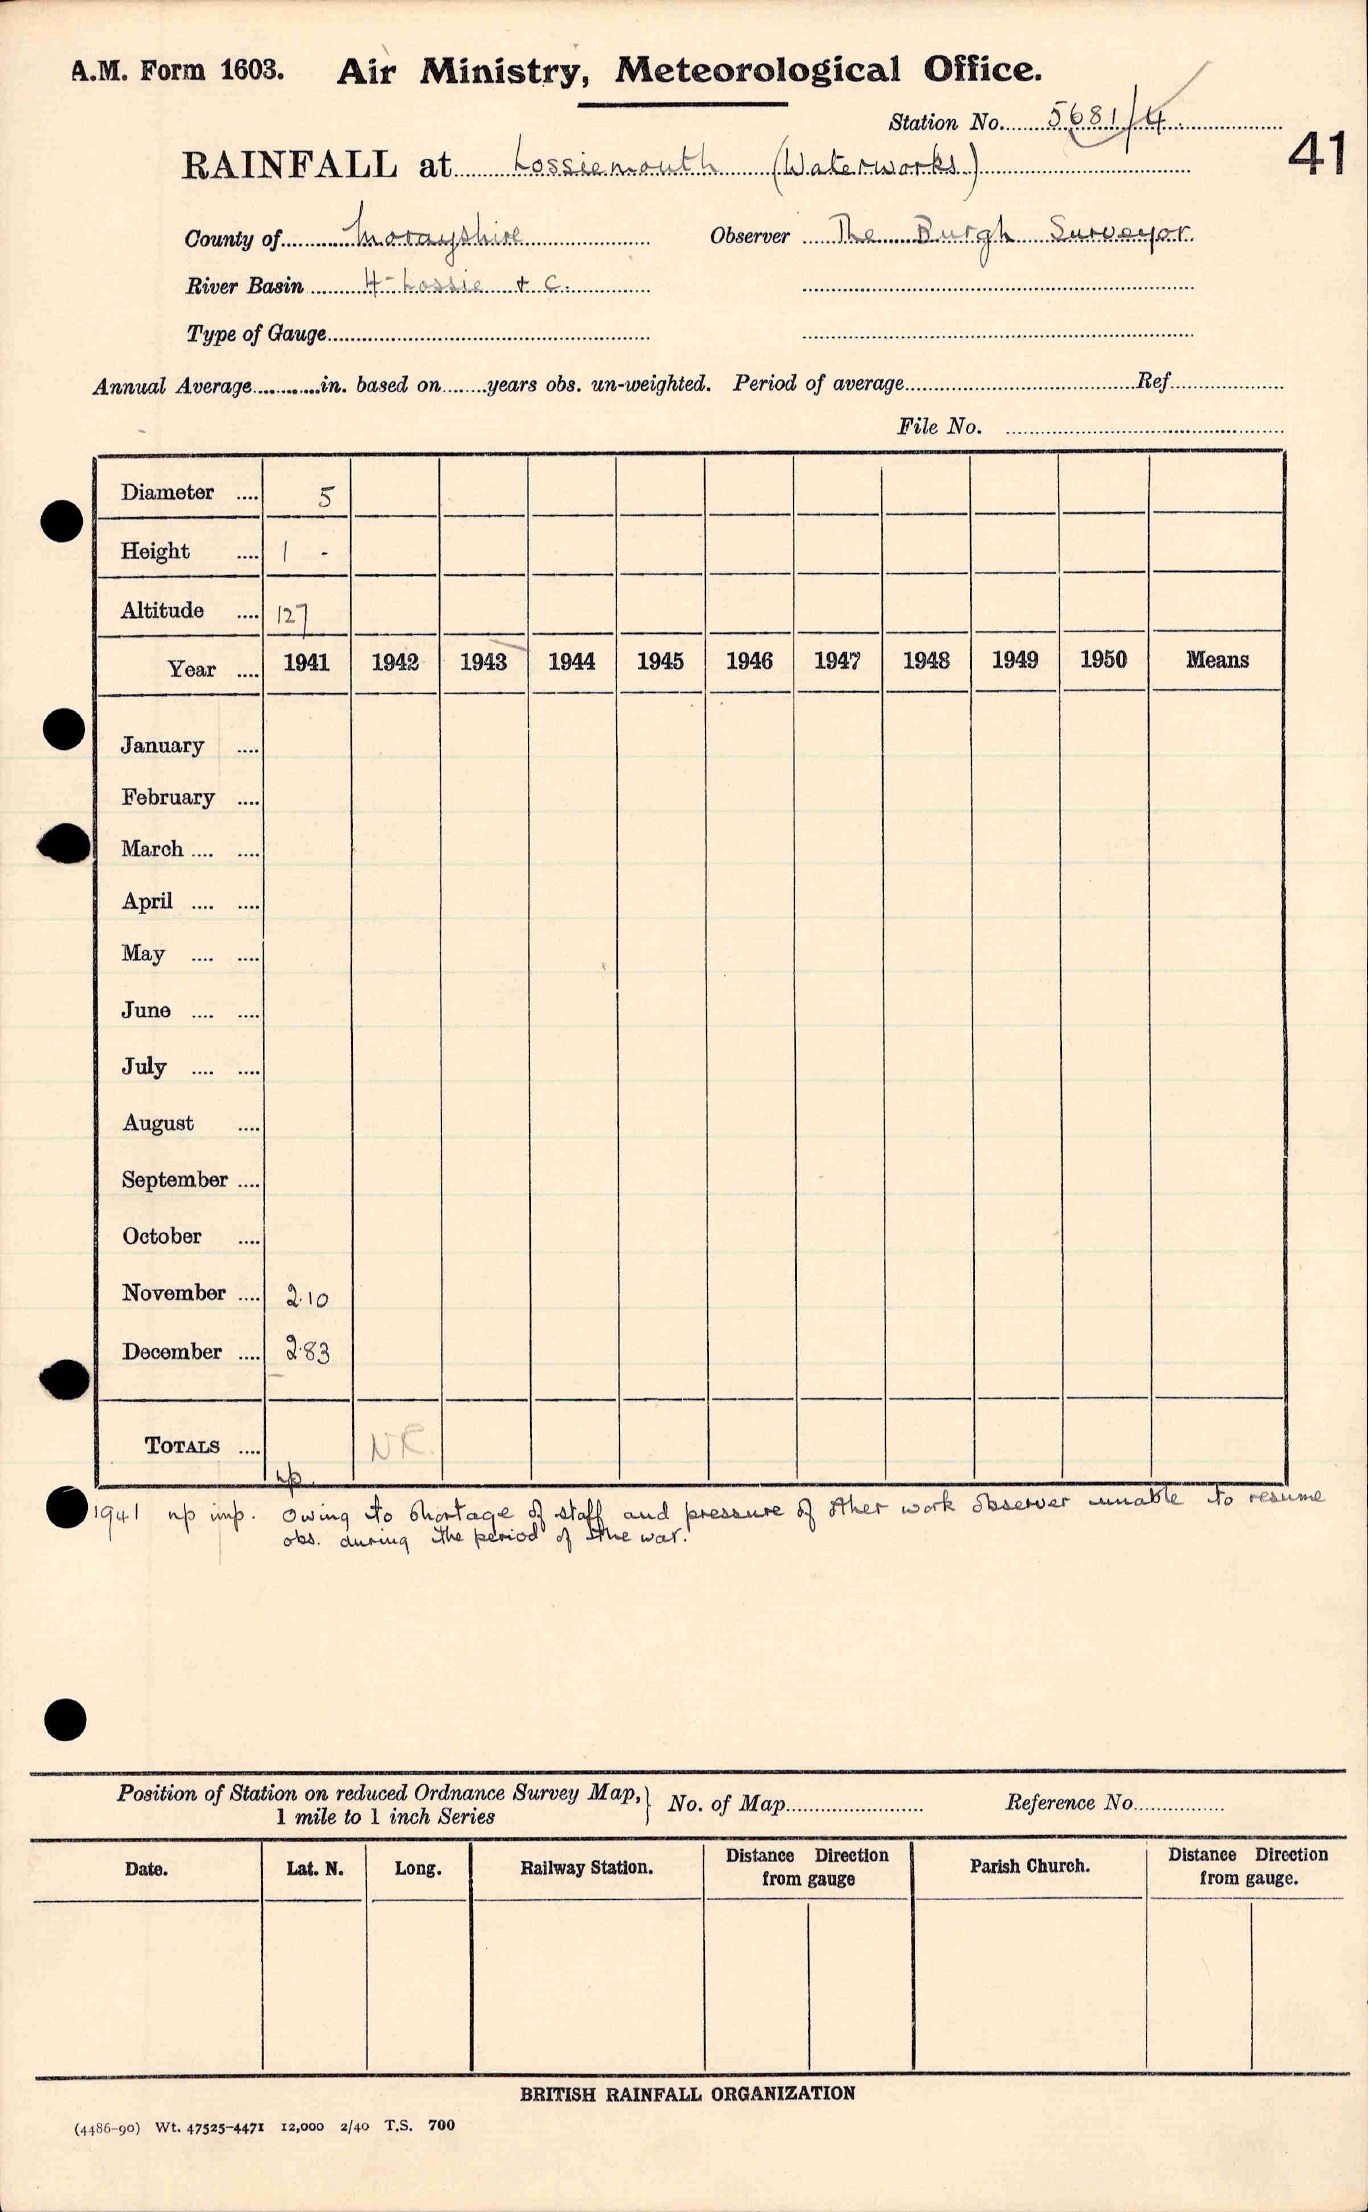 A.M. Form 1603. Air Ministry, Meteorological Office.
Station No. 5681/4
41
RAINFALL at Lossiemouth (Waterworks)
County of Morayshire Observer The Burgh Surveyor.
River Basin 4-Lossie + C.
Type of Gauge
Annual Average in. based on years obs. un-weighted. Period of average Ref
File No.
Diameter .... 5
Height .... 1 -
Altitude .... 127
Year .... 1941 1942 1943 1944 1945 1946 1947 1948 1949 1950 Means
January ....
February ....
March .... ....
April .... ....
May .... ....
June .... ....
July .... ....
August ....
September ....
October ....
November .... 2.10
December .... 2.83
TOTALS .... np. NR.
1941 np imp. Owing to shortage of staff and pressure of other work observer unable to resume
obs. during the period of the war.
Position of Station on reduced Ordnance Survey Map,} No. of Map Reference No.
1 mile to 1 inch Series
Date. Lat. N. Long. Railway Station. Distance Direction from gauge Parish Church. Distance Direction from gauge.
BRITISH RAINFALL ORGANIZATION
(4486-90) Wt. 47525-4471 12,000 2/40 T.S. 700